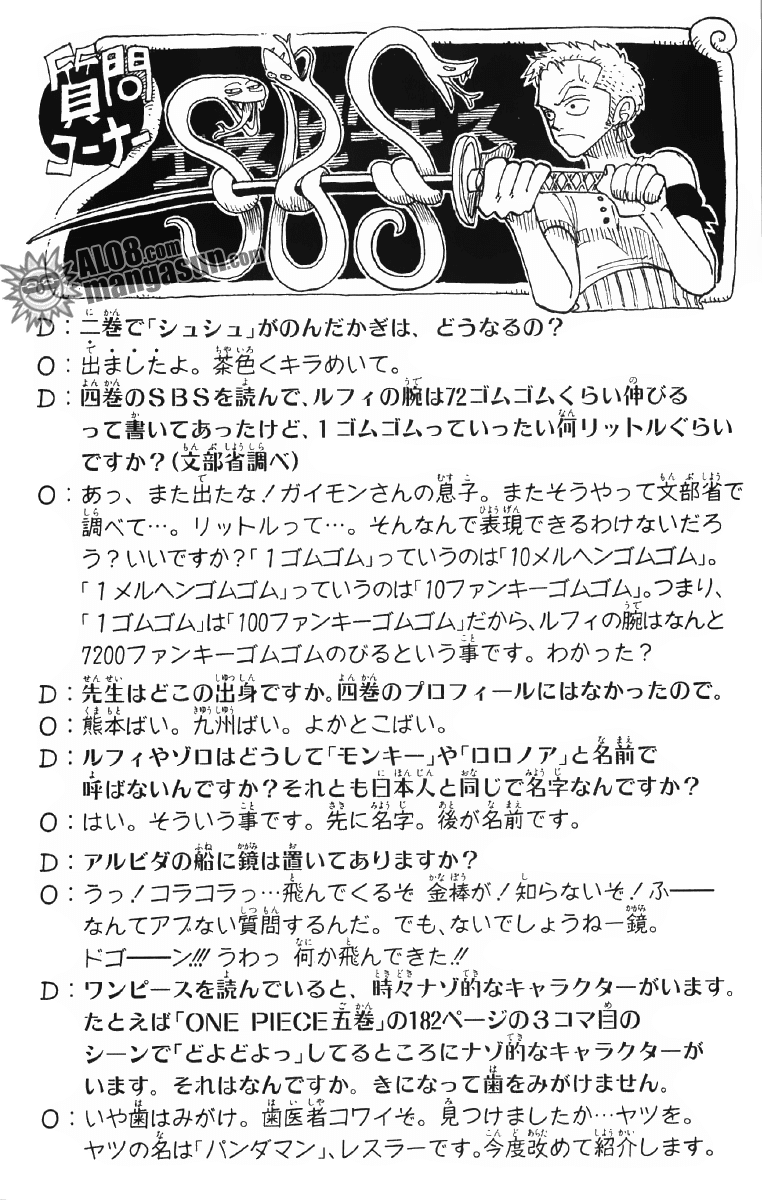 質問
コーナー
エスビーエス
SBS
AL08.com
mangasun.com
D：二巻で「シュシュ」がのんだかぎは、どうなるの？
O：出ましたよ。茶色くキラめいて。
D：四巻のSBSを読んで、ルフィの腕は72ゴムゴムくらい伸びる
って書いてあったけど、1ゴムゴムっていったい何リットルぐらい
ですか？(文部省調べ)
O：あっ、また出たな！ガイモンさんの息子。またそうやって文部省で
調べて…。リットルって…。そんなんで表現できるわけないだろ
う？いいですか？「1ゴムゴム」っていうのは「10メルヘンゴムゴム」。
「1メルヘンゴムゴム」っていうのは「10ファンキーゴムゴム」。つまり、
「1ゴムゴム」は「100ファンキーゴムゴム」だから、ルフィの腕はなんと
7200ファンキーゴムゴムのびるという事です。わかった？
D：先生はどこの出身ですか。四巻のプロフィールにはなかったので。
O：熊本ばい。九州ばい。よかとこばい。
D：ルフィやゾロはどうして「モンキー」や「ロロノア」と名前で
呼ばないんですか？それとも日本人と同じで名字なんですか？
O：はい。そういう事です。先に名字。後が名前です。
D：アルビダの船に鏡は置いてありますか？
O：うっ！コラコラっ…飛んでくるぞ 金棒が！知らないぞ！ふ――
なんてアブない質問するんだ。でも、ないでしょうねー鏡。
ドゴ――ン!!! うわっ 何か飛んできた!!
D：ワンピースを読んでいると、時々ナゾ的なキャラクターがいます。
たとえば「ONE PIECE五巻」の182ページの3コマ目の
シーンで「どよどよっ」してるところにナゾ的なキャラクターが
います。それはなんですか。きになって歯をみがけません。
O：いや歯はみがけ。歯医者コワイぞ。見つけましたか…ヤツを。
ヤツの名は「パンダマン」、レスラーです。今度改めて紹介します。